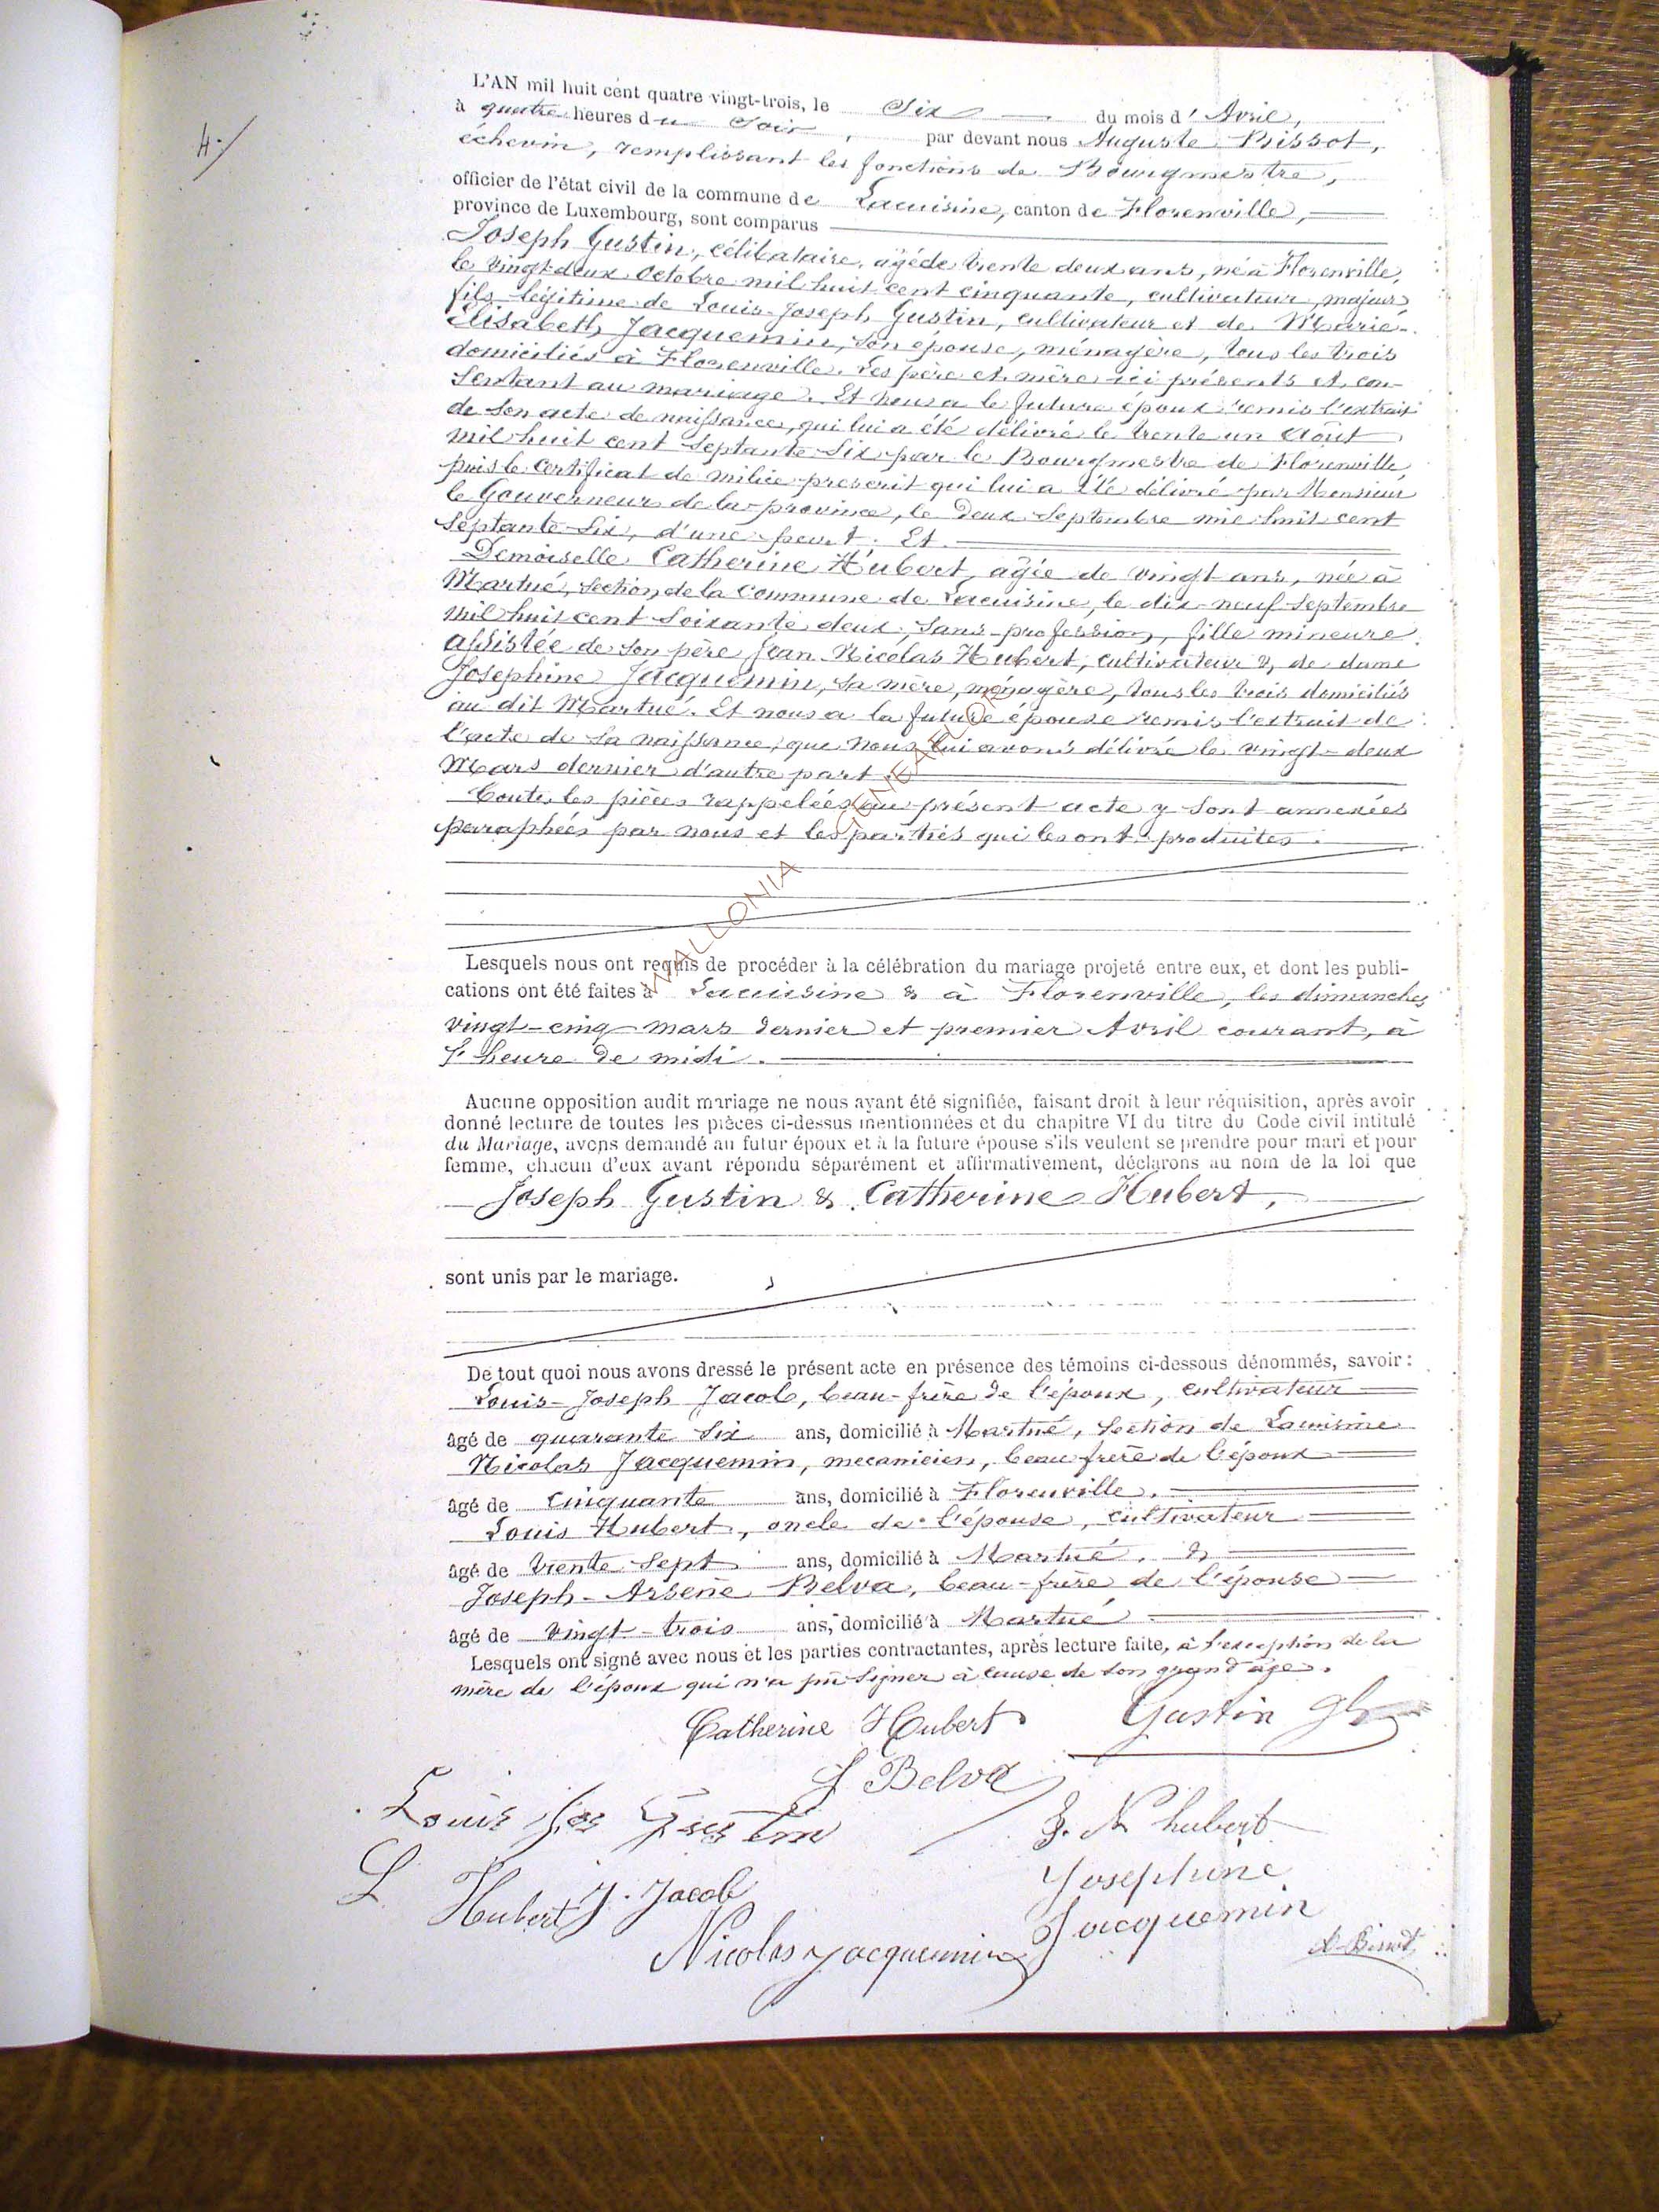 4./
L'AN mil huit cent quatre vingt-trois, le Six du mois d' Avril,
à quatre heures du Soir, par devant nous Auguste Bissot,
échevin, remplissant les fonctions de Bourgmestre,
officier de l'état civil de la commune de Lacuisine, canton de Florenville,
province de Luxembourg, sont comparus
Joseph Gustin, célibataire, âgé de trente deux ans, né à Florenville,
le vingt-deux Octobre mil huit cent cinquante, cultivateur, majeur
fils légitime de Louis-Joseph Gustin, cultivateur et de Marie-
Elisabeth Jacquemin, son épouse, ménagère, tous les trois
domiciliés à Florenville. Les père et mère ici présents et con-
sentant au mariage. Et nous a le futur époux remis l'extrait
de son acte de naissance, qui lui a été délivré le trente un Août
mil huit cent septante-six par le Bourgmestre de Florenville
puis le certificat de milice prescrit qui lui a été délivré par Monsieur
le Gouverneur de la province, le deux Septembre mil huit cent
septante-six, d'une part. Et
Demoiselle Catherine Hubert, agée de vingt ans, née à
Martué, section de la Commune de Lacuisine, le dix-neuf Septembre
mil huit cent soixante deux, sans profession, fille mineure
assistée de son père Jean Nicolas Hubert, cultivateur & de dame
Josephine Jacquemin, sa mère, ménagère, tous les trois domiciliés
au dit Martué. Et nous a la future épouse remis l'extrait de
l'acte de sa naissance, que nous lui avons délivré le vingt-deux
Mars dernier d'autre part
Toutes les pièces rappelées au présent acte y sont annexées
paraphées par nous et les parties qui les ont produites.
WALLONIA GENEALOGIE
Lesquels nous ont requis de procéder à la célébration du mariage projeté entre eux, et dont les publi-
cations ont été faites à Lacuisine & à Florenville, les dimanches
vingt-cinq mars dernier et premier Avril courant, à
l'heure de midi.
Aucune opposition audit mariage ne nous ayant été signifiée, faisant droit à leur réquisition, après avoir
donné lecture de toutes les pièces ci-dessus mentionnées et du chapitre VI du titre du Code civil intitulé
du Mariage, avons demandé au futur époux et à la future épouse s'ils veulent se prendre pour mari et pour
femme, chacun d'eux ayant répondu séparément et affirmativement, déclarons au nom de la loi que
Joseph Gustin & Catherine Hubert,
sont unis par le mariage.
De tout quoi nous avons dressé le présent acte en présence des témoins ci-dessous dénommés, savoir :
Louis-Joseph Jacob, beau-frère de l'époux, cultivateur
âgé de quarante six ans, domicilié à Martué, Section de Lacuisine
Nicolas Jacquemin, mecanicien, beau frère de l'époux
âgé de cinquante ans, domicilié à Florenville.
Louis Hubert, oncle de l'épouse, cultivateur
âgé de trente sept ans, domicilié à Martué. &
Joseph-Arsène Belva, beau-frère de l'épouse
âgé de vingt-trois ans, domicilié à Martué
Lesquels ont signé avec nous et les parties contractantes, après lecture faite, à l'exception de la
mère de l'époux qui n'a pu signer à cause de son grand âge.
Catherine Hubert Gustin
J Belva
Louis Jos Gustin J. N hubert
L Hubert J. Jacob Josephine
Nicolas Jacquemin Jacquemin
A. Bissot